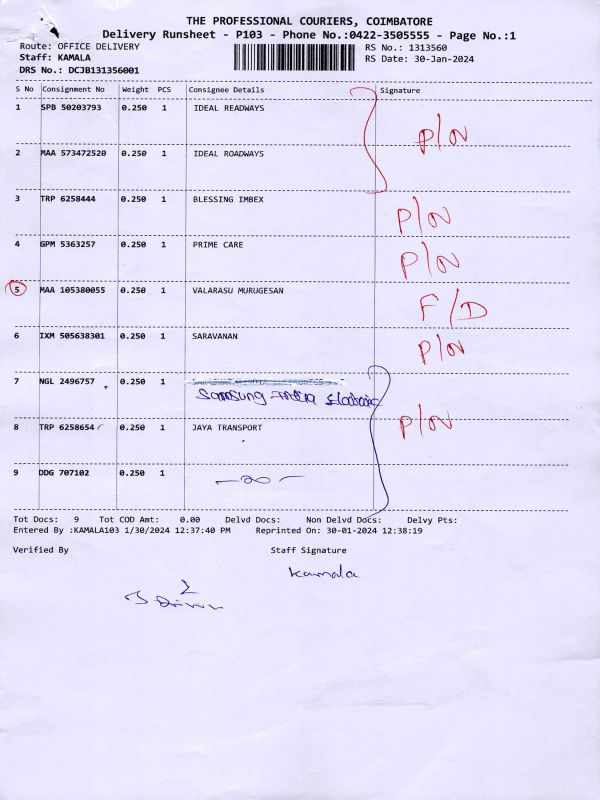 THE PROFESSIONAL COURIERS, COIMBATORE
Delivery Runsheet - P103 - Phone No.:0422-3505555 - Page No.:1
Route: OFFICE DELIVERY RS No.: 1313560
Staff: KAMALA RS Date: 30-Jan-2024
DRS No.: DCJB131356001
S No Consignment No Weight PCS Consignee Details Signature
1 SPB 50203793 0.250 1 IDEAL READWAYS
P/N
2 MAA 573472520 0.250 1 IDEAL ROADWAYS
3 TRP 6258444 0.250 1 BLESSING IMBEX P/N
4 GPM 5363257 0.250 1 PRIME CARE P/N
5 MAA 105380055 0.250 1 VALARASU MURUGESAN F/D
6 IXM 505638301 0.250 1 SARAVANAN P/N
7 NGL 2496757 0.250 1
Samsung India
8 TRP 6258654 0.250 1 JAYA TRANSPORT P/N
9 DDG 707102 0.250 1
Tot Docs: 9 Tot COD Amt: 0.00 Delvd Docs: Non Delvd Docs: Delvy Pts:
Entered By :KAMALA103 1/30/2024 12:37:40 PM Reprinted On: 30-01-2024 12:38:19
Verified By Staff Signature
Kamala